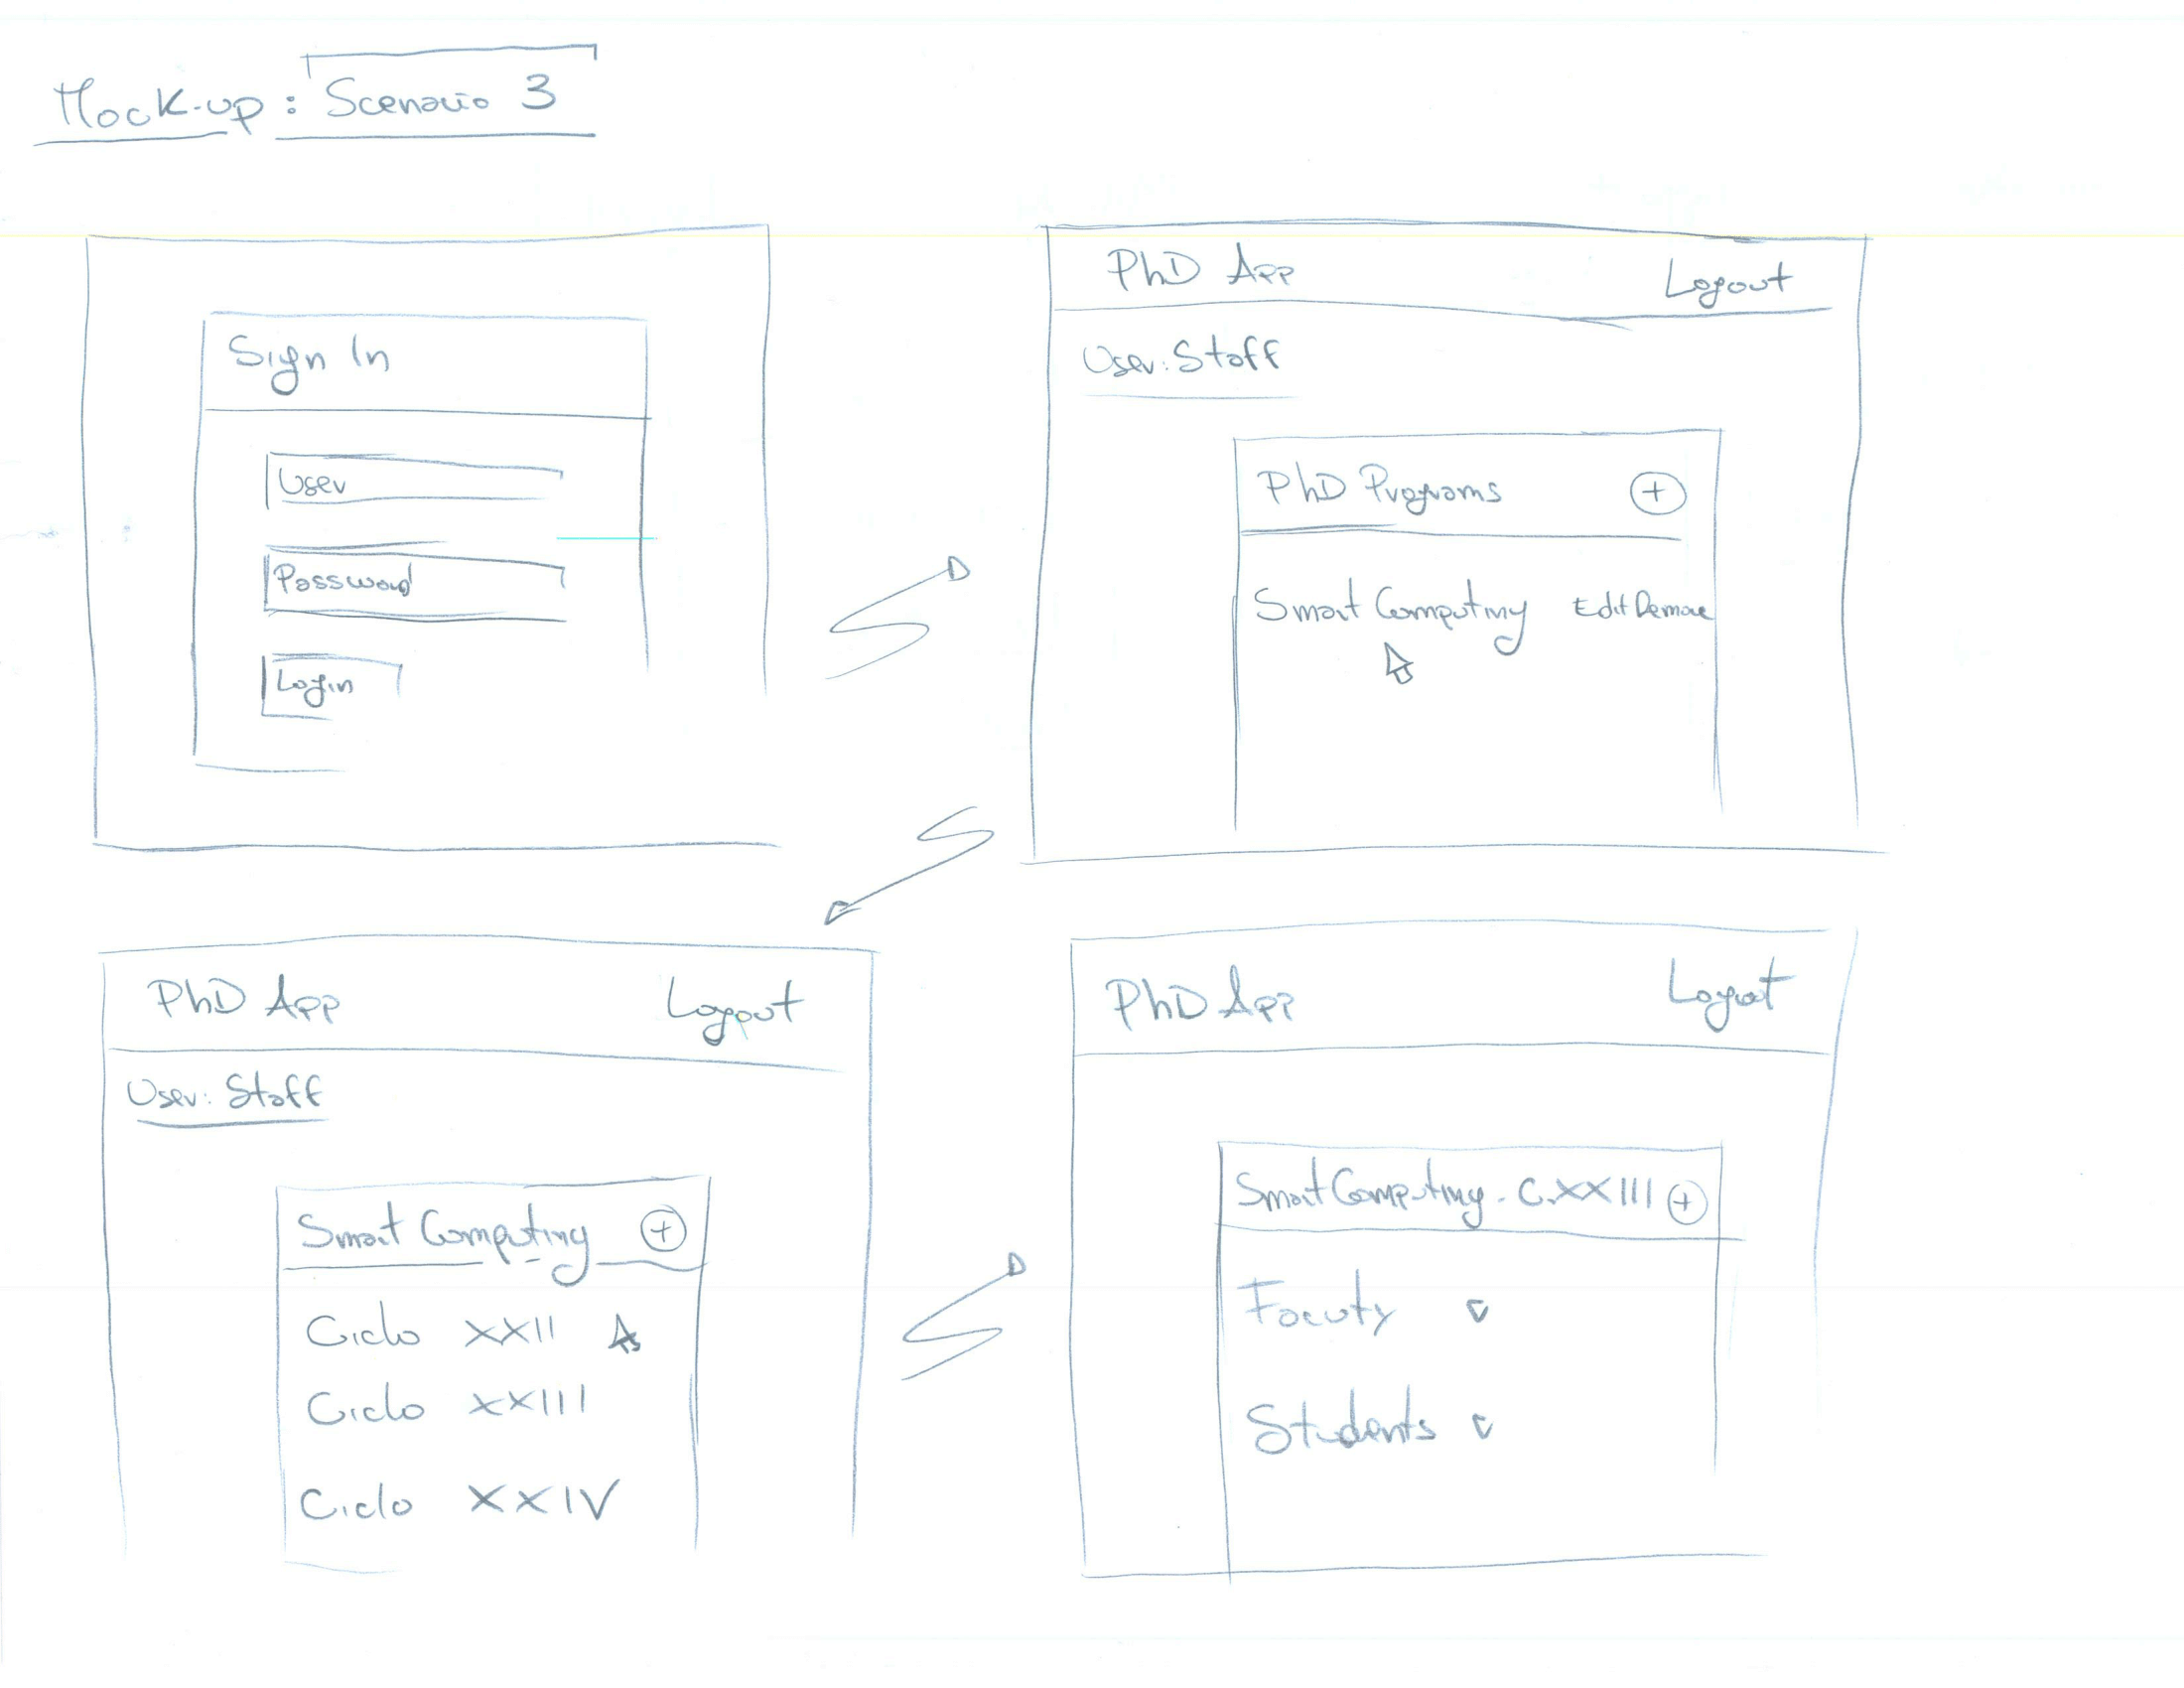 Mock-up : Scenario 3
Sign In
User
Password
Login
PhD App Logout
User: Staff
PhD Programs +
Smart Computing Edit Remove
PhD App Logout
User: Staff
Smart Computing +
Ciclo XXII
Ciclo XXIII
Ciclo XXIV
PhD App Logout
Smart Computing - C.XXIII +
Facuty
Students